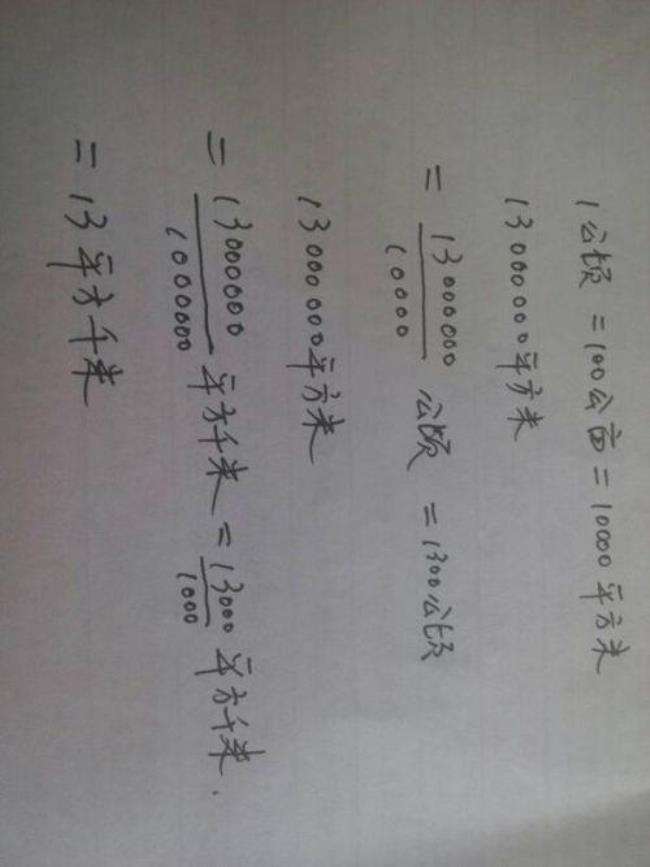 1公顷 =100公亩=10000平方米
13000000平方米
= 13000000/10000 公顷 =1300公顷
13000000平方米
= 13000000/1000000 平方千米 = 13000/1000 平方千米.
= 13平方千米